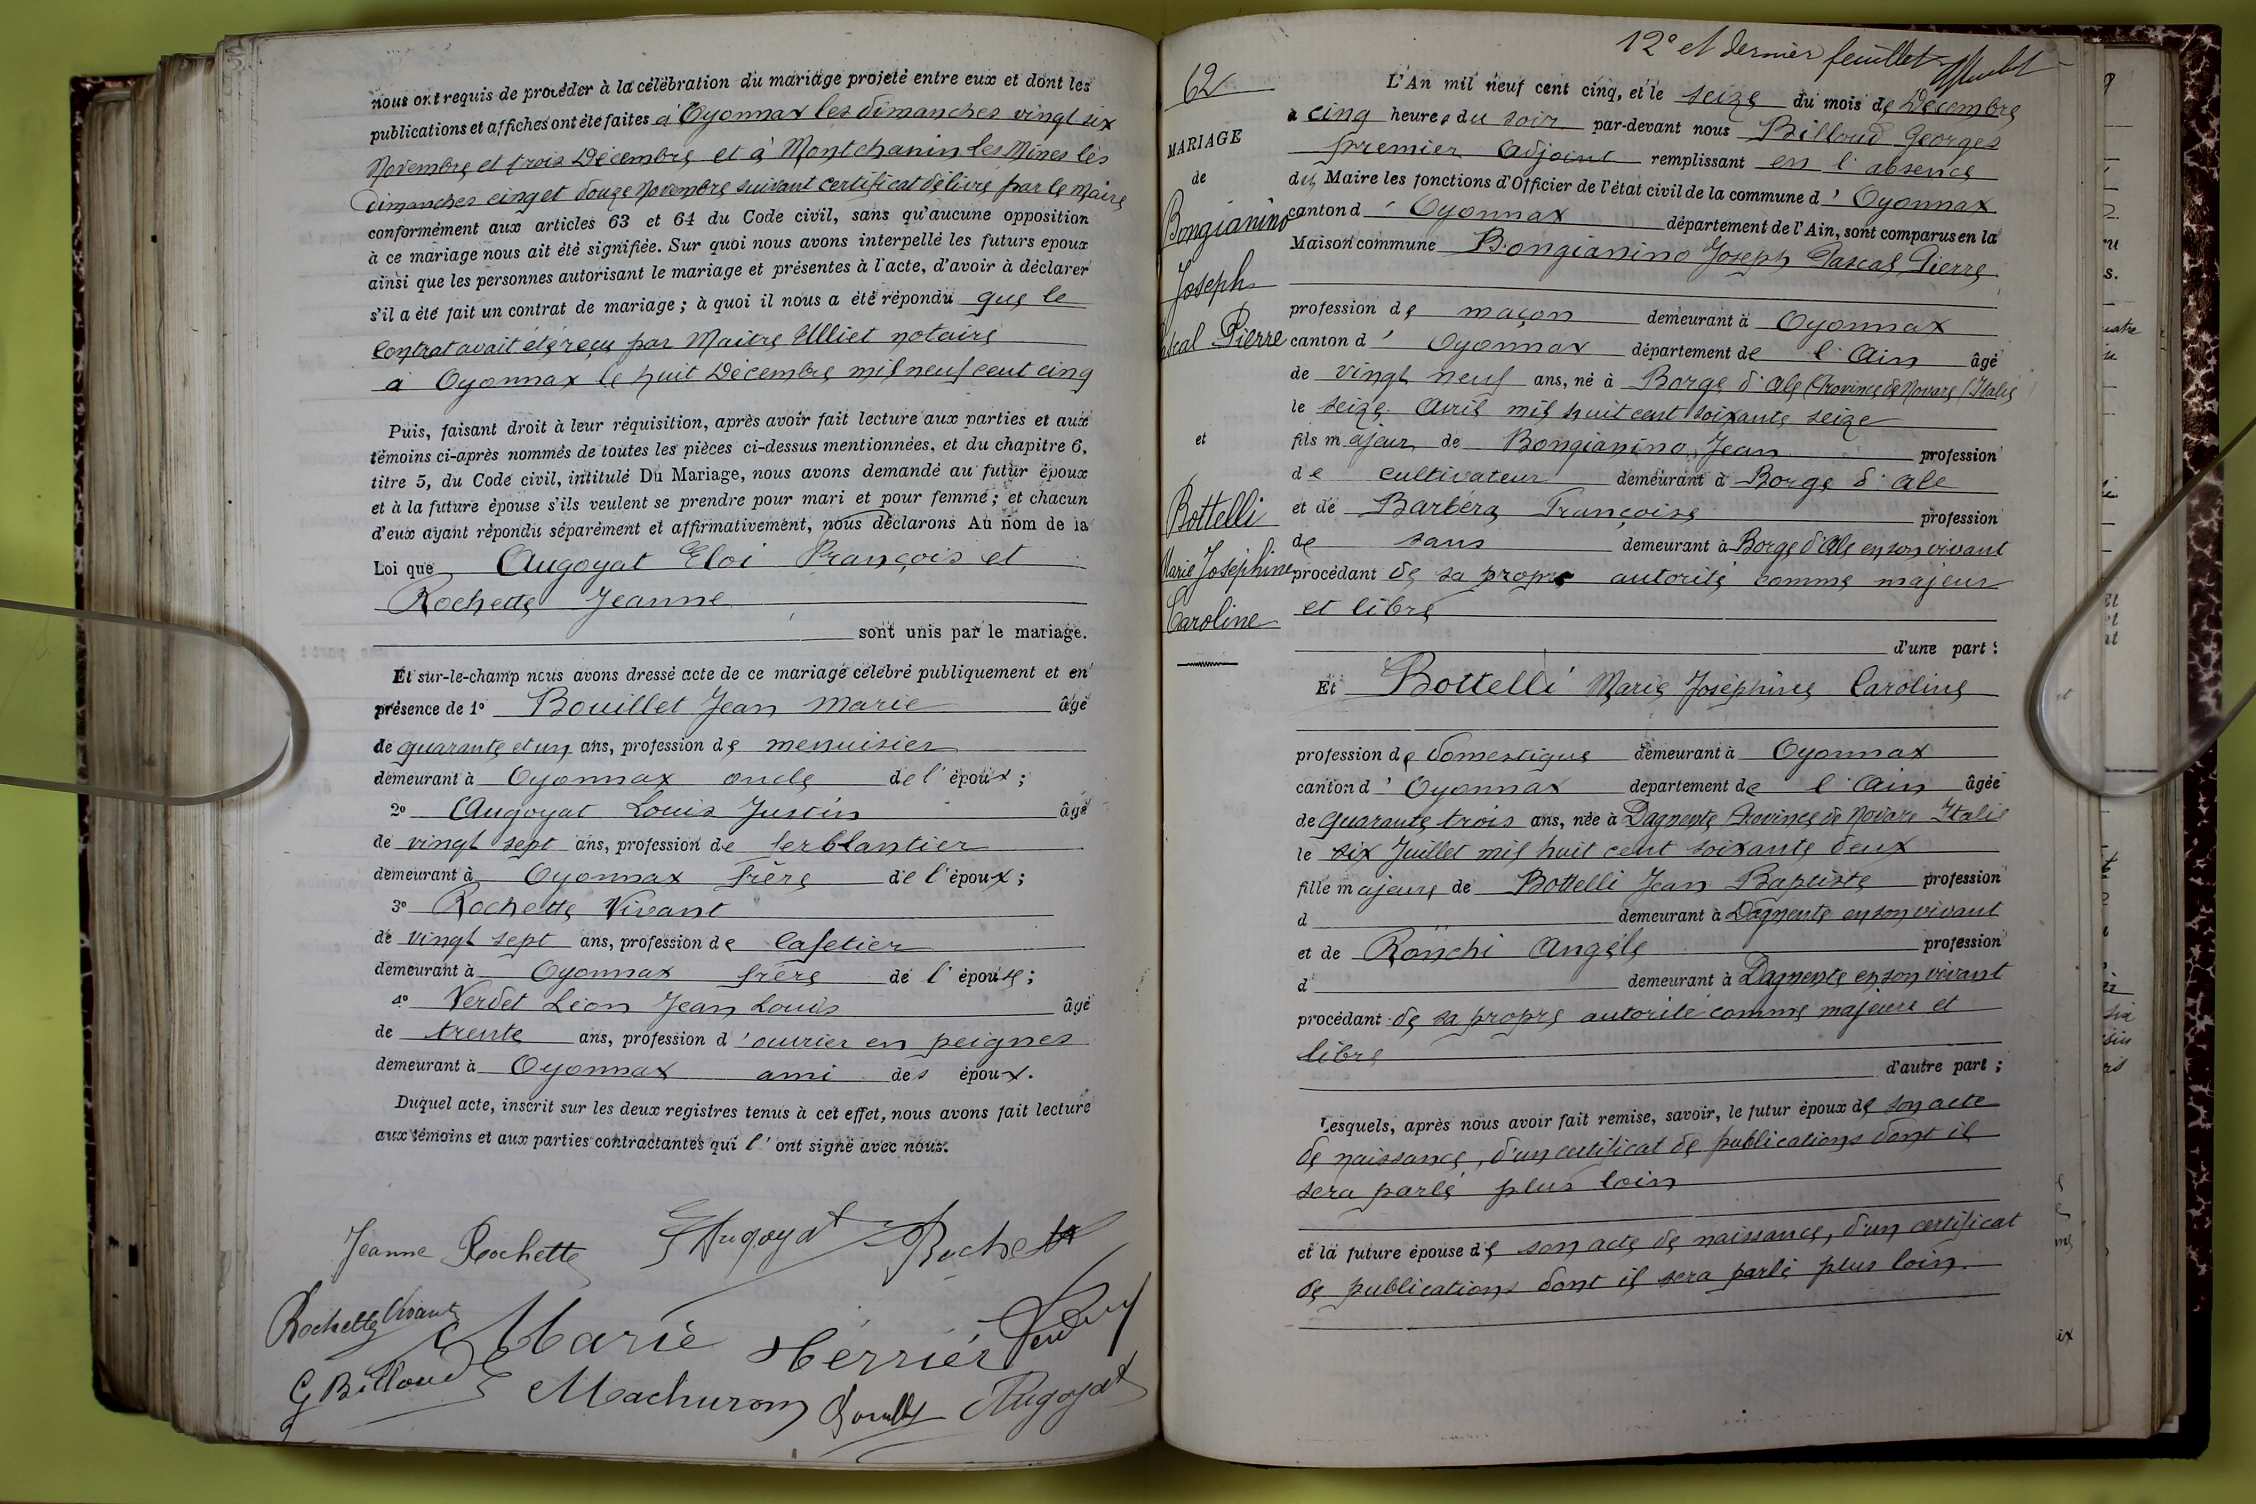 nous ont requis de procéder à la célébration du mariage projeté entre eux et dont les
publications et affiches ont été faites à Oyonnax les dimanches vingt six
Novembre et trois Décembre et à Montchanin les Mines les
dimanches cinq et douze Novembre suivant certificat délivré par le Maire
conformément aux articles 63 et 64 du Code civil, sans qu'aucune opposition
à ce mariage nous ait été signifiée. Sur quoi nous avons interpellé les futurs epoux
ainsi que les personnes autorisant le mariage et présentes à l'acte, d'avoir à déclarer
s'il a été fait un contrat de mariage ; à quoi il nous a été répondu que le
Contrat avait été reçu par Maitre Ulliet notaire
à Oyonnax le huit Décembre mil neuf cent cinq
Puis, faisant droit à leur réquisition, après avoir fait lecture aux parties et aux
témoins ci-après nommés de toutes les pièces ci-dessus mentionnées, et du chapitre 6,
titre 5, du Code civil, intitulé Du Mariage, nous avons demandé au futur époux
et à la future épouse s'ils veulent se prendre pour mari et pour femme ; et chacun
d'eux ayant répondu séparément et affirmativement, nous déclarons Au nom de la
Loi que Augoyat Eloi François et
Rochette Jeanne
sont unis par le mariage.
Et sur-le-champ nous avons dressé acte de ce mariage célébré publiquement et en
présence de 1° Bouillet Jean Marie âgé
de quarante et un ans, profession de menuisier
demeurant à Oyonnax oncle de l'époux ;
2° Augoyat Louis Justin âgé
de vingt sept ans, profession de ferblantier
demeurant à Oyonnax frère de l'époux ;
3° Rochette Vivant
de vingt sept ans, profession de Cafetier
demeurant à Oyonnax frère de l'épouse ;
4° Verdet Léon Jean Louis âgé
de trente ans, profession d'ouvrier en peignes
demeurant à Oyonnax ami des époux.
Duquel acte, inscrit sur les deux registres tenus à cet effet, nous avons fait lecture
aux témoins et aux parties contractantes qui l'ont signé avec nous.
Jeanne Rochette E Augoyat Rochette
Rochette Vivant Marie Hérriér
G Billoud Machuron Augoyat
12e et dernier feuillet
62
MARIAGE
de
Bongianino
Joseph
Pascal Pierre
et
Bottelli
Marie Joséphine
Caroline
L'An mil neuf cent cinq, et le seize du mois de Décembre
à cinq heures du soir par-devant nous Billoud Georges
premier adjoint remplissant en l'absence
du Maire les fonctions d'Officier de l'état civil de la commune d'Oyonnax
canton d'Oyonnax département de l'Ain, sont comparus en la
Maison commune Bongianino Joseph Pascal Pierre
profession de maçon demeurant à Oyonnax
canton d'Oyonnax département de l'Ain âgé
de vingt neuf ans, né à Borge d'ale (Province de Novare) Italie
le seize Avril mil huit cent soixante seize
fils majeur de Bongianino Jean profession
de cultivateur demeurant à Borge d'ale
et de Barbéra Françoise profession
de sans demeurant à Borge d'Ale en son vivant
procédant de sa propre autorité comme majeur
et libre
d'une part :
Et Bottelli Marie Joséphine Caroline
profession de domestique demeurant à Oyonnax
canton d'Oyonnax departement de l'Ain âgée
de quarante trois ans, née à Dagnente Province de Novare Italie
le six Juillet mil huit cent soixante deux
fille majeure de Bottelli Jean Baptiste profession
d demeurant à Dagnente en son vivant
et de Ronchi Angèle profession
d demeurant à Dagnente en son vivant
procédant de sa propre autorité comme majeure et
libre
d'autre part ;
Lesquels, après nous avoir fait remise, savoir, le futur époux de son acte
de naissance, d'un certificat de publications dont il
sera parlé plus loin
et la future épouse de son acte de naissance, d'un certificat
de publications dont il sera parlé plus loin.